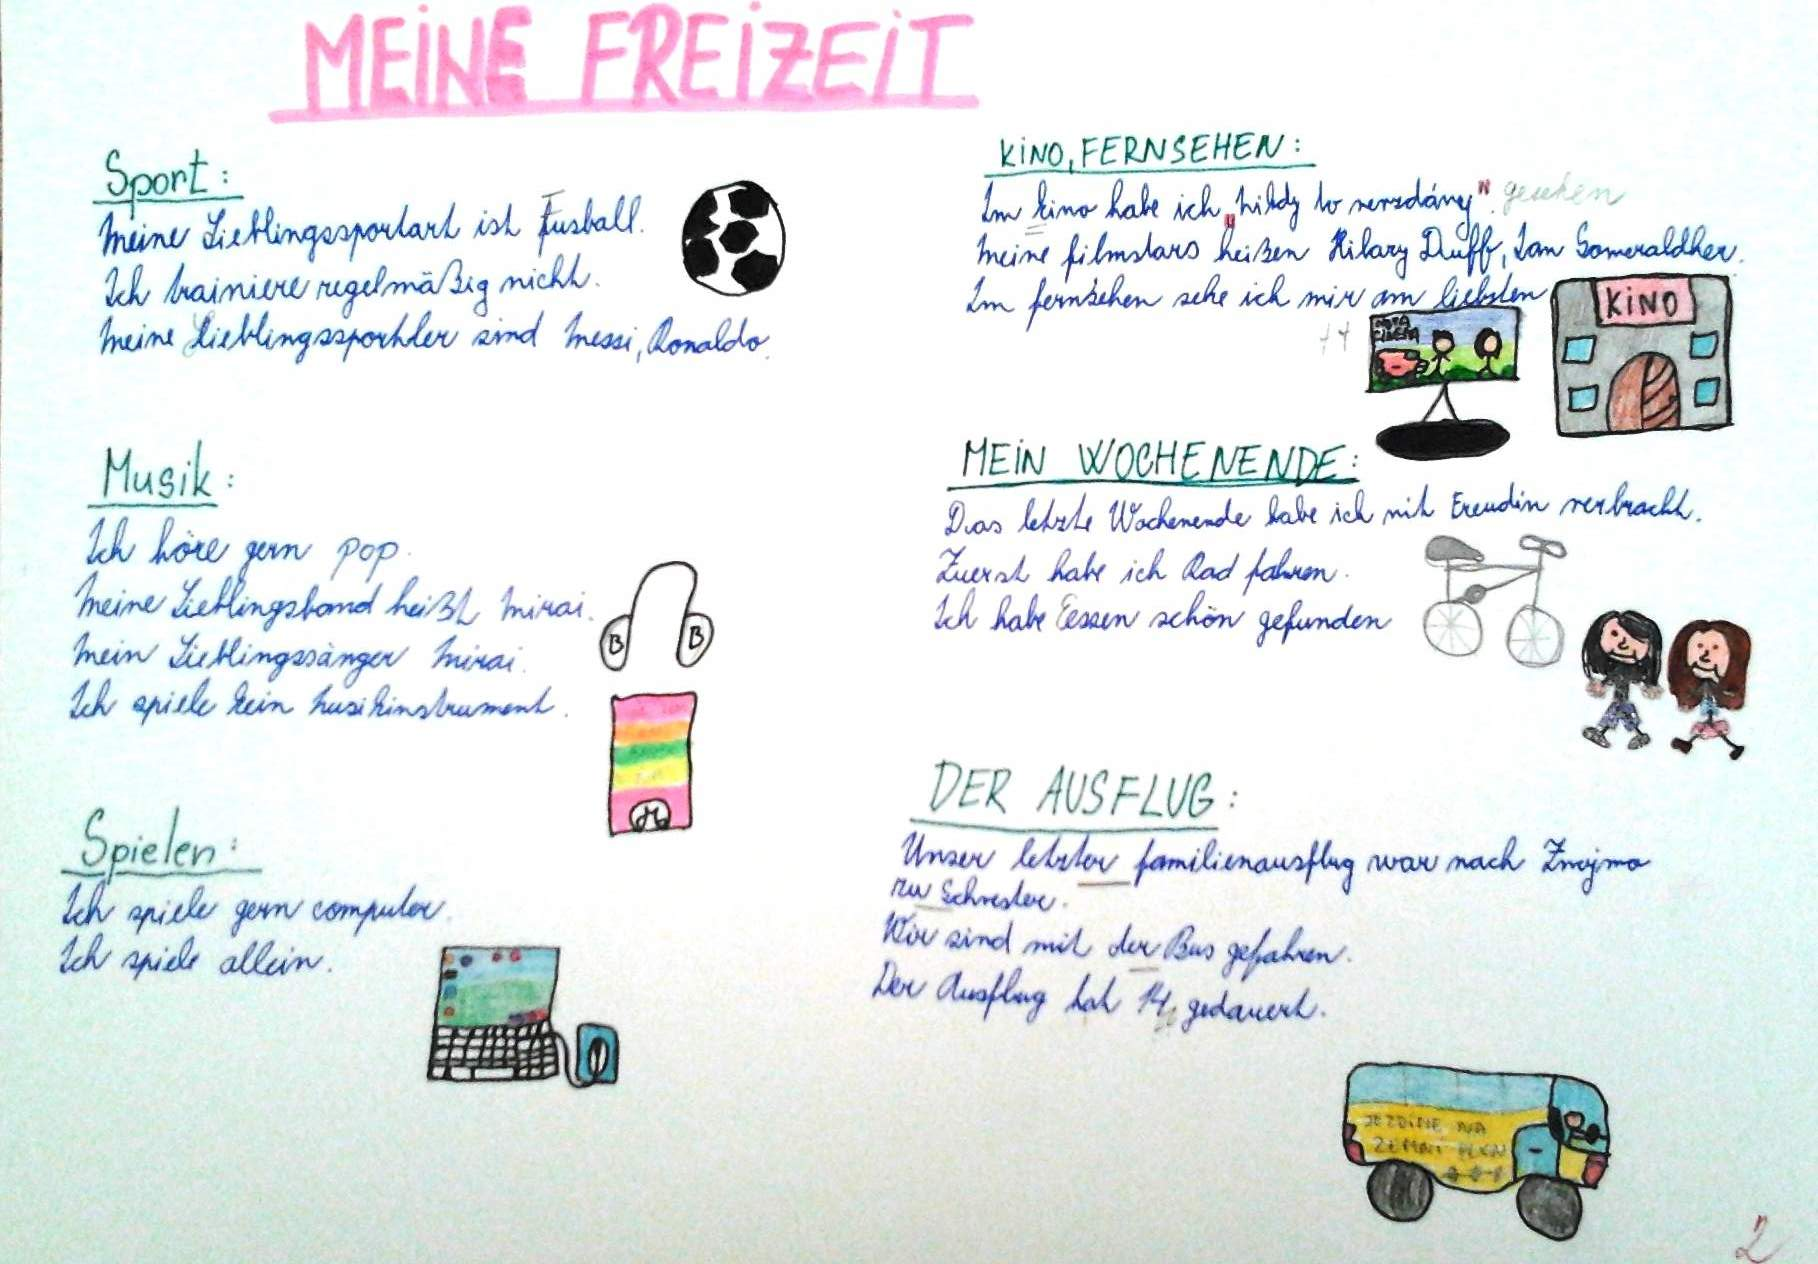 MEINE FREIZEIT
Sport:
Meine Lieblingssportart ist Fusball.
Ich trainiere regelmäßig nicht.
Meine Lieblingssportler sind Messi, Ronaldo.
Musik:
Ich höre gern pop.
Meine Lieblingsband heißt Mirai.
Mein Lieblingssänger Mirai.
Ich spiele kein Musikinstrument.
B B
Spielen:
Ich spiele gern computer.
Ich spiele allein.
KINO, FERNSEHEN:
Im kino habe ich „Nikdy to nevzdávej“.
Meine filmstars heißen Hilary Duff, Ian Someraldher.
Im fernsehen sehe ich mir am liebsten
KINO
MEIN WOCHENENDE:
Das letzte Wochenende habe ich mit Freudin verbracht.
Zuerst habe ich Rad fahren.
Ich habe Eessen schön gefunden
DER AUSFLUG:
Unser letzter familienausflug war nach Znojmo
zur Schvester.
Wir sind mit der Bus gefahren.
Der Ausflug hat 14 gedauert.
JEZDÍME NA
ZEMNÍ PLYN
2